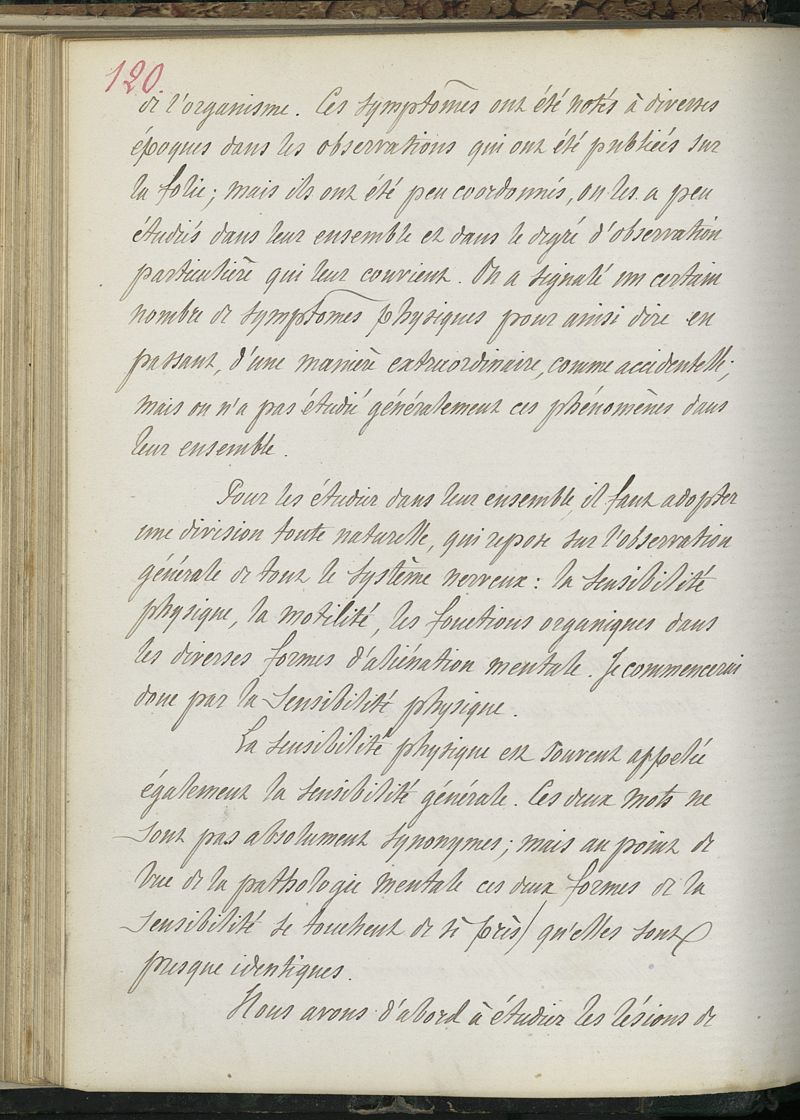 120
de l'organisme. Ces symptômes ont été notés à diverses
époques dans les observations qui ont été publiées sur
la folie; mais ils ont été peu coordonnés, on les a peu
étudiés dans leur ensemble et dans le degré d'observation
particulière qui leur convient. On a signalé un certain
nombre de symptômes physiques pour ainsi dire en
passant, d'une manière extraordinaire, comme accidentelle;
mais on n'a pas étudié généralement ces phénomènes dans
leur ensemble.
Pour les étudier dans leur ensemble, il faut adopter
une division toute naturelle, qui repose sur l'observation
générale de tout le système nerveux: la sensibilité
physique, la motilité, les fonctions organiques dans
les diverses formes d'aliénation mentale. Je commencerai
donc par la sensibilité physique.
La sensibilité physique est souvent appelée
également la sensibilité générale. Ces deux mots ne
sont pas absolument synonymes; mais au point de
vue de la pathologie mentale ces deux formes de la
sensibilité se touchent de si près qu'elles sont
presque identiques.
Nous avons d'abord à étudier les lésions de